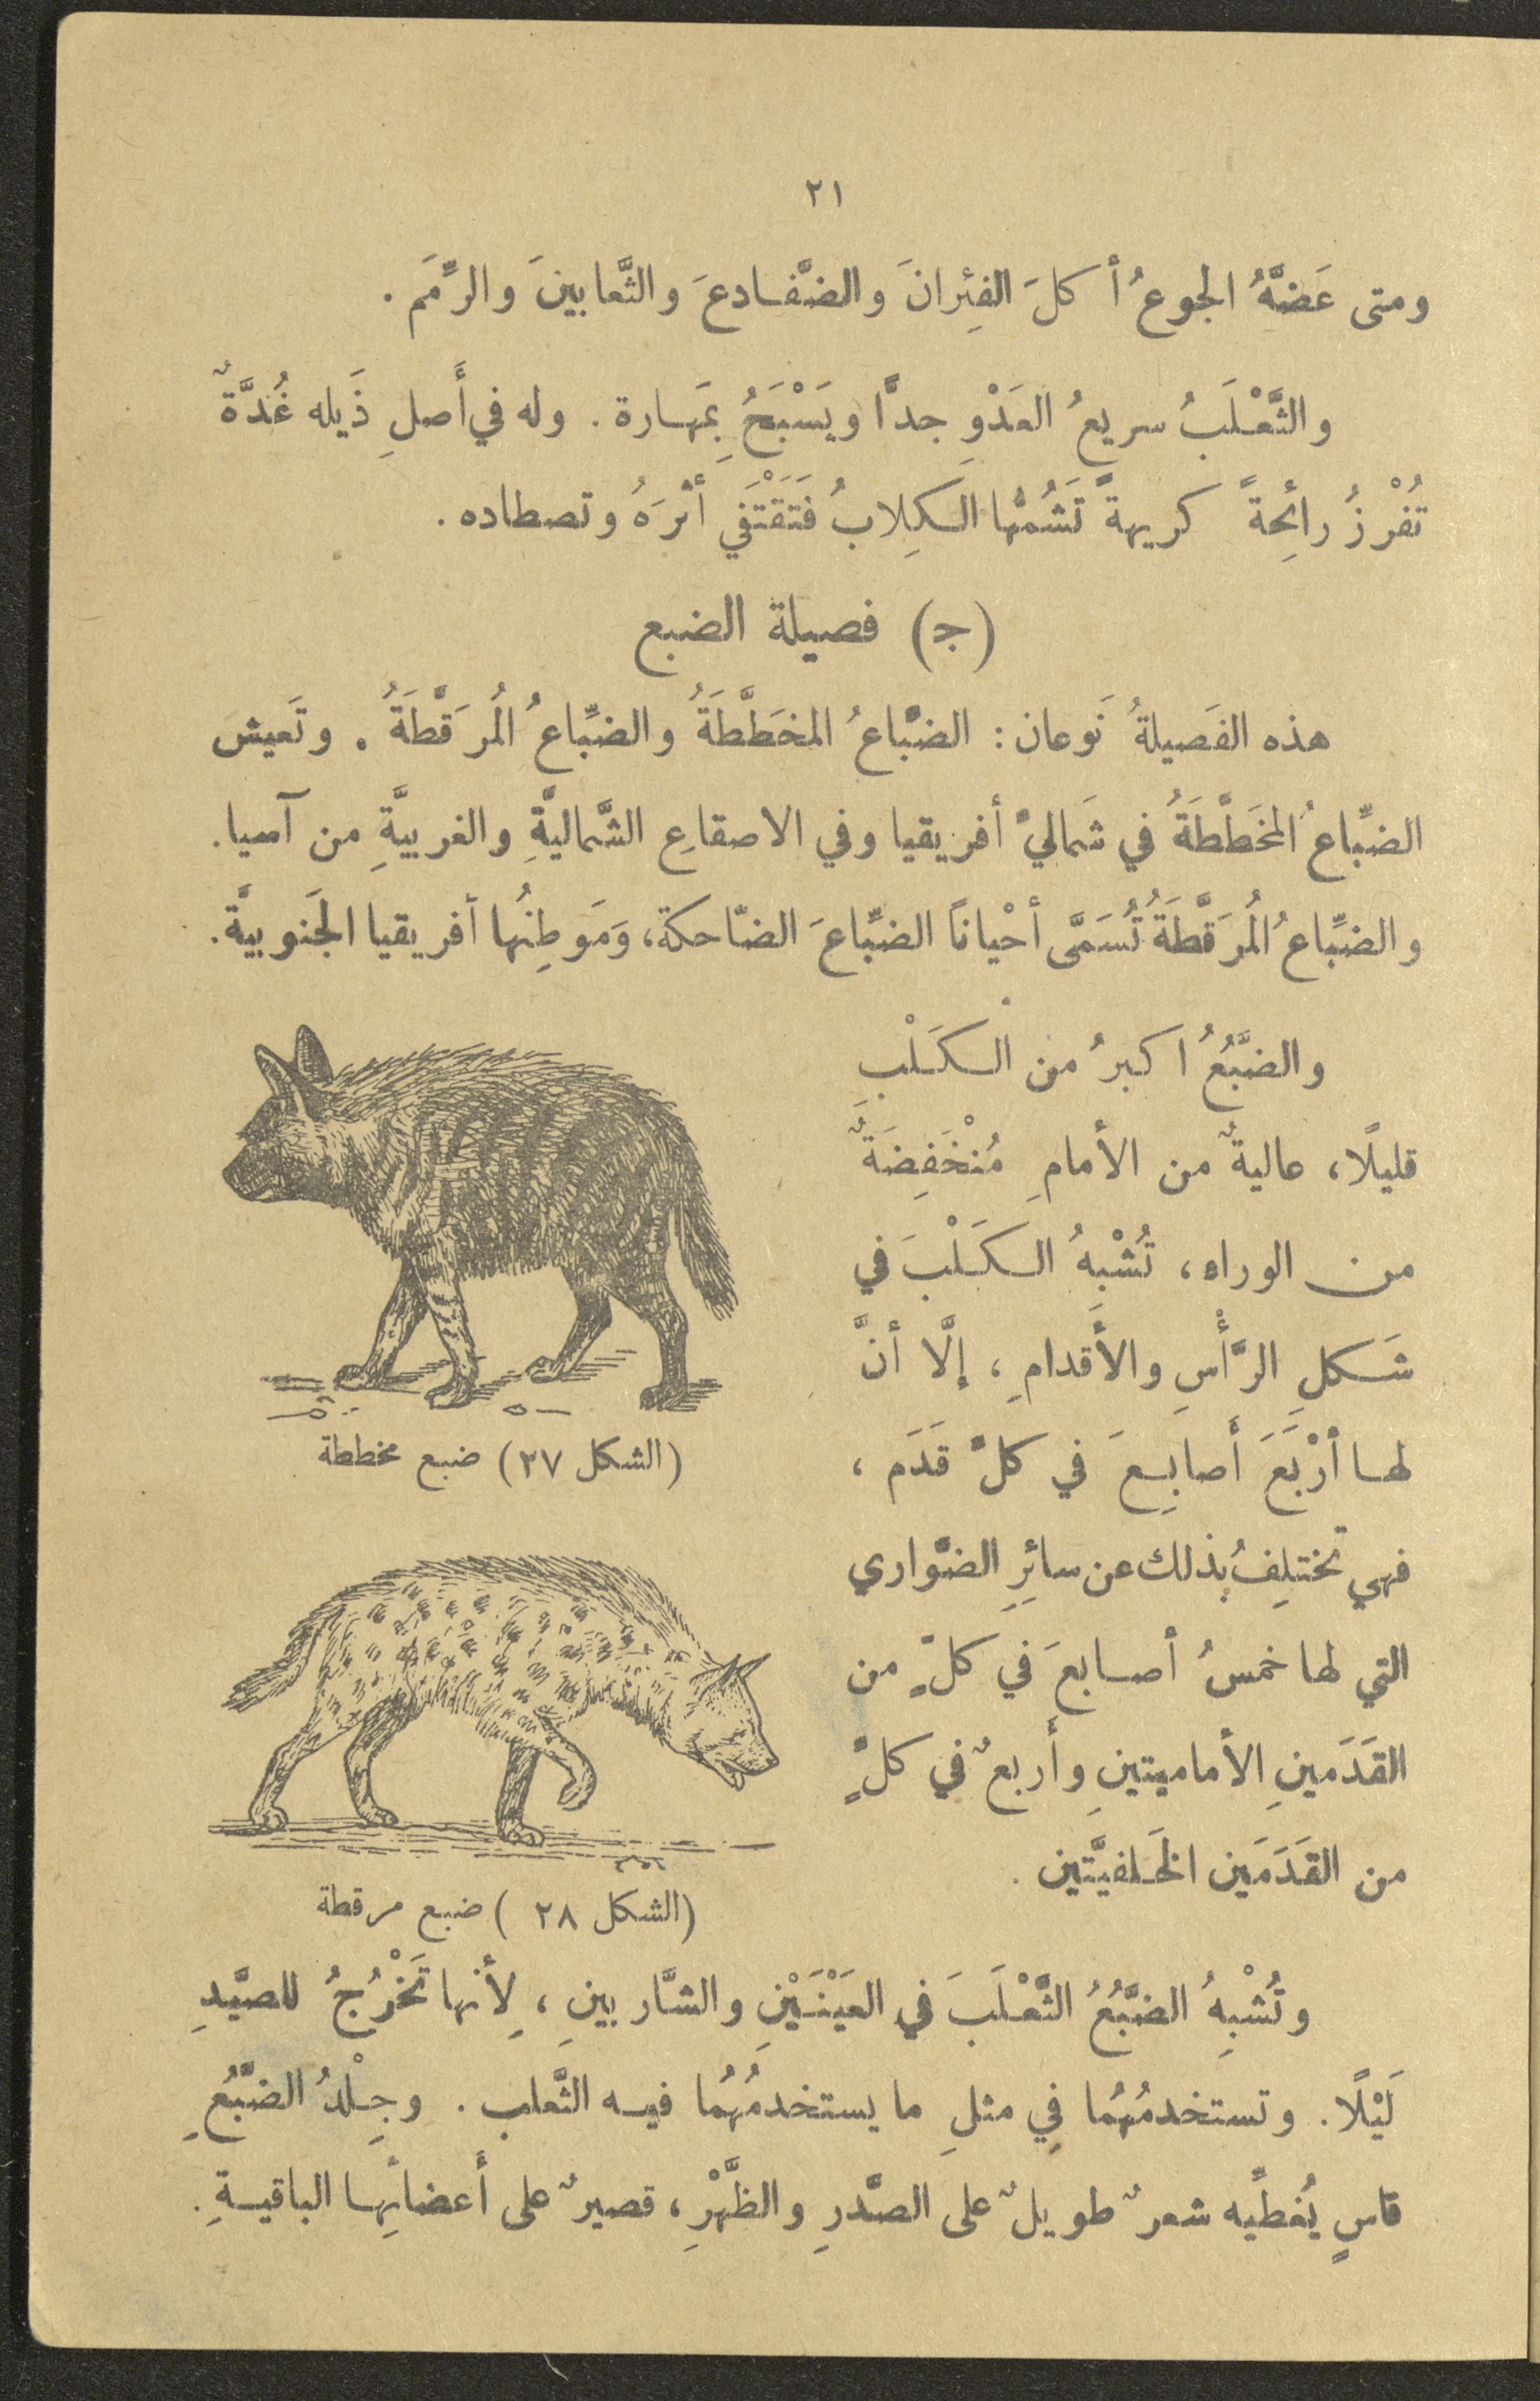 ٢١
ومتى عَضَّهُ الجوعُ أكلَ الفِئرانَ والضَّفادعَ والثَّعابينَ والرِّمَم.
والثَّعْلَبُ سريعُ العَدْوِ جدًّا ويَسْبَحُ بِمَهارة. وله في أَصلِ ذَيله غُدَّةٌ
تُفْرْزُ رائِحةً كريهةً تَشُمُّها الكِلابُ فَتَقْتَفي أثْرَهُ وتصطاده.
(ج) فصيلة الضبع
هذه الفَصيلةُ نَوعان: الضبّاعُ المخَطَّطَةُ والضبِّاعُ المُرَقَّطَةُ. وتَعيش
الضبِّاعُ المخَطَّطَةُ في شَماليّ أفريقيا وفي الاصقاعِ الشَّماليَّةِ والغربيَّةِ من آسيا.
والضبِّاعُ المُرَقَّطَةُ تُسَمَّى أحْيانًا الضبِّاعَ الضّاحكة، وَمَوطِنُها أفريقيا الجَنوبيَّة.
والضبَّعُ اكبرُ من الكَلْبِ
قليلًا، عاليةٌ من الأمامِ مُنْخَفِضَةٌ
من الوراء، تُشْبهُ الكَلْبَ في
شَكلِ الرَّأْسِ والأَقدامِ، إلَّا أنَّ
لها أرْبَعَ أَصابِعَ في كلّ قَدَم،
فهي تختلِفُ بذلك عن سائِرِ الضَّواري
التي لها خمسُ أصابعَ في كلّ من
القَدَمينِ الأماميتينِ وأَربعٌ في كلّ
من القَدَمَين الخَلفيَّتين.
(الشكل ٢٧) ضبع مخططة
(الشكل ٢٨) ضبع مرقطة
وتُشْبِهُ الضبَّعُ الثَّعْلَبَ في العَيْنَيْنِ والشَّاربينِ، لِأنها تَخْرُجُ للصيَّدِ
لَيْلًا. وتستخدمُهُما في مثلِ ما يستخدمُهُما فيه الثَّعلب. وجِلْدُ الضبَّعِ
قاسٍ يُغطيِّه شعرٌ طويلٌ على الصَّدرِ والظَّهْرِ، قصيرٌ على أَعضائِها الباقيةِ.